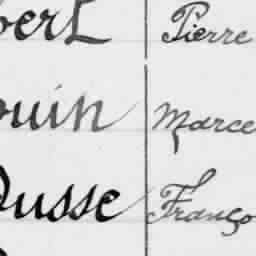 bert Pierre
ouin Marce
Dusse Franço